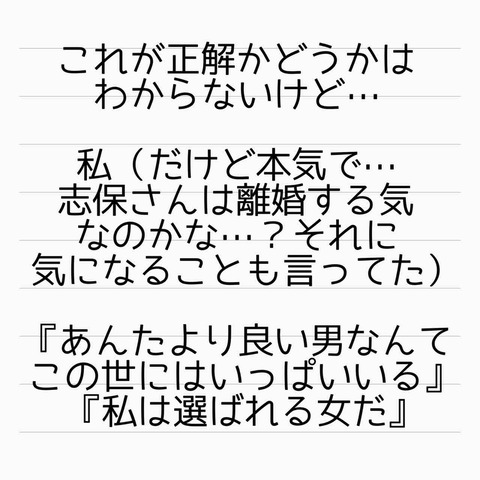 これが正解かどうかは
わからないけど…
私（だけど本気で…
志保さんは離婚する気
なのかな…？それに
気になることも言ってた）
『あんたより良い男なんて
この世にはいっぱいいる』
『私は選ばれる女だ』